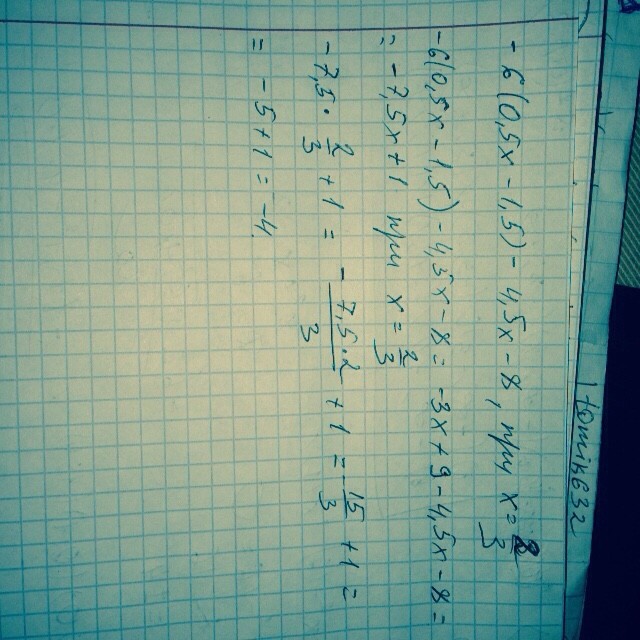 tomik632
-6(0,5x - 1,5) - 4,5x - 8, при x = 2/3
-6(0,5x - 1,5) - 4,5x - 8 = -3x + 9 - 4,5x - 8 =
= -7,5x + 1 при x = 2/3
-7,5 · 2/3 + 1 = - 7,5·2/3 + 1 = - 15/3 + 1 =
= -5 + 1 = -4